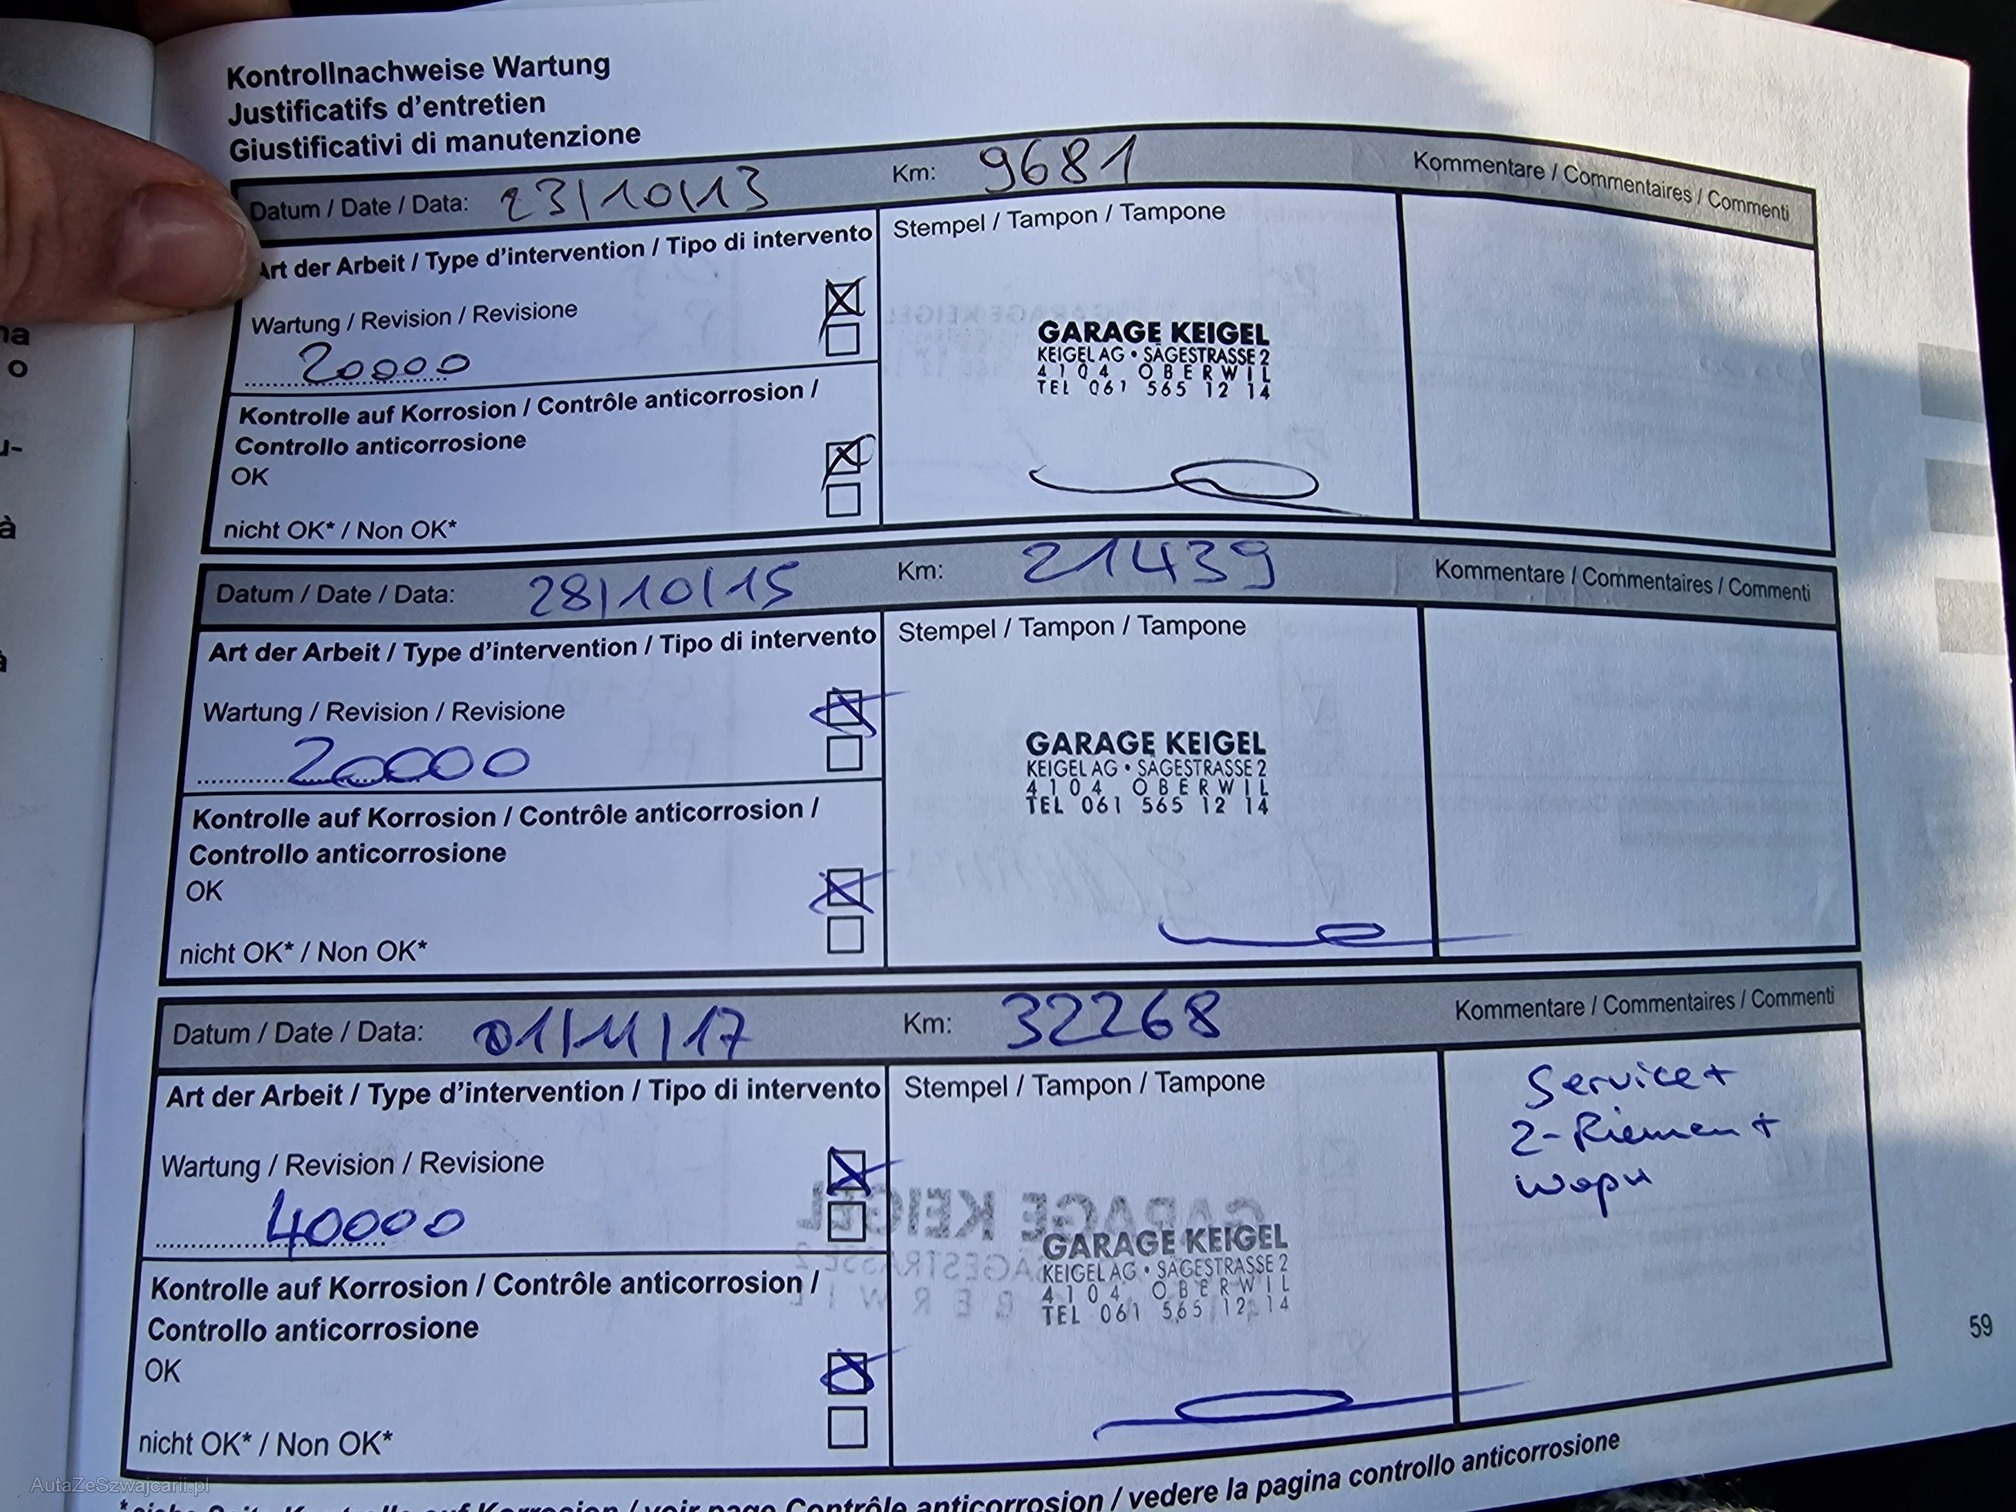 Kontrollnachweise Wartung
Justificatifs d'entretien
Giustificativi di manutenzione
Datum / Date / Data: 23/10/13 Km: 9681 Kommentare / Commentaires / Commenti
Art der Arbeit / Type d'intervention / Tipo di intervento
Stempel / Tampon / Tampone
Wartung / Revision / Revisione
20000
GARAGE KEIGEL
KEIGEL AG • SÄGESTRASSE 2
4104 OBERWIL
TEL 061 565 12 14
Kontrolle auf Korrosion / Contrôle anticorrosion /
Controllo anticorrosione
OK
nicht OK* / Non OK*
Datum / Date / Data: 28/10/15 Km: 21439 Kommentare / Commentaires / Commenti
Art der Arbeit / Type d'intervention / Tipo di intervento
Stempel / Tampon / Tampone
Wartung / Revision / Revisione
20000
GARAGE KEIGEL
KEIGEL AG • SÄGESTRASSE 2
4104 OBERWIL
TEL 061 565 12 14
Kontrolle auf Korrosion / Contrôle anticorrosion /
Controllo anticorrosione
OK
nicht OK* / Non OK*
Datum / Date / Data: 01/11/17 Km: 32268 Kommentare / Commentaires / Commenti
Art der Arbeit / Type d'intervention / Tipo di intervento
Stempel / Tampon / Tampone
Service +
2-Riemen +
wapu
Wartung / Revision / Revisione
40000
GARAGE KEIGEL
KEIGEL AG • SÄGESTRASSE 2
4104 OBERWIL
TEL 061 565 12 14
Kontrolle auf Korrosion / Contrôle anticorrosion /
Controllo anticorrosione
OK
nicht OK* / Non OK*
59
Contrôle anticorrosion / vedere la pagina controllo anticorrosione
AutaZeSzwajcarii.pl